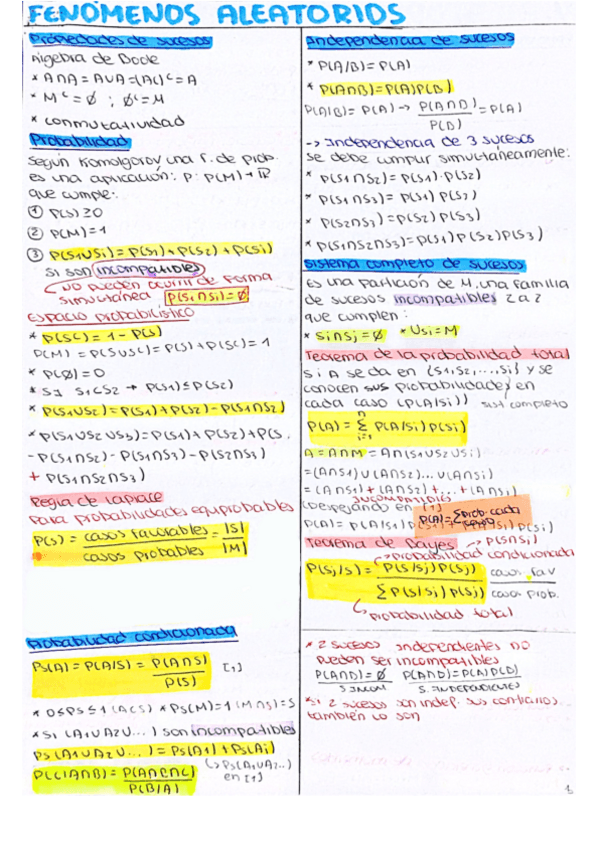 FENÓMENOS ALEATORIOS
Propiedades de sucesos
Algebra de Boole
* A∩A = A∪A = (Ac)c = A
* Mc = Ø ; Øc = M
* conmutatividad
Probabilidad
Según Komolgorov una f. de prob.
es una aplicación: P: P(M) → ℝ
que cumple:
① P(S) ≥ 0
② P(M) = 1
③ P(S1∪Si) = P(S1) + P(S2) + P(Si)
si son incompatibles
↳ no pueden ocurrir de forma
simultánea P(S1∩Si) = Ø
Espacio probabilístico
* P(Sc) = 1 - P(S)
P(M) = P(S∪Sc) = P(S) + P(Sc) = 1
* P(Ø) = 0
* Si S1⊂S2 → P(S1) ≤ P(S2)
* P(S1∪S2) = P(S1) + P(S2) - P(S1∩S2)
* P(S1∪S2∪S3) = P(S1) + P(S2) + P(S
- P(S1∩S2) - P(S1∩S3) - P(S2∩S3)
+ P(S1∩S2∩S3)
Regla de Laplace
Para probabilidades equiprobables
P(S) = casos favorables / casos probables = |S| / |M|
Probabilidad condicionada
Ps(A) = P(A/S) = P(A∩S) / P(S) [1]
* 0≤Ps≤1 (A⊂S) * Ps(M) = 1 (M∩S) = S
* Si (A1∪A2∪...) son incompatibles
Ps(A1∪A2∪...) = Ps(A1) + Ps(Ai)
↳ Ps(A1∪A2...)
en [1]
P(C|A∩B) = P(A∩B∩C) / P(B/A)
Independencia de sucesos
* P(A/B) = P(A)
* P(A∩B) = P(A)P(B)
P(A|B) = P(A) → P(A∩B) / P(B) = P(A)
→ Independencia de 3 sucesos
Se debe cumplir simultáneamente:
* P(S1∩S2) = P(S1)·P(S2)
* P(S1∩S3) = P(S1)P(S3)
* P(S2∩S3) = P(S2)P(S3)
* P(S1∩S2∩S3) = P(S1)P(S2)P(S3)
Sistema completo de sucesos
Es una partición de M, una familia
de sucesos incompatibles 2 a 2
que cumplen:
* Si∩Sj = Ø * USi = M
Teorema de la probabilidad total
Si A se da en {S1, S2, ..., Si} y se
conocen sus probabilidades en
cada caso (P(A/Si)) sist completo
P(A) = Σ P(A/Si)P(Si)
A = A∩M = A∩(S1∪S2∪Si)
= (A∩S1)∪(A∩S2)...∪(A∩Si)
= (A∩S1) + (A∩S2) + ... + (A∩Si)
incompatibles
(Despejando en [1]
P(A) = Σprob. cada
P(Si)
Teorema de Bayes → P(S∩Si)
→ probabilidad condicionada
P(Sj/S) = P(S/Sj)P(Sj) / ΣP(S/Sj)P(Sj) casos fav / casos prob.
↳ probabilidad total
* 2 sucesos independientes no
pueden ser incompatibles
P(A∩D) = Ø P(A∩D) = P(A)P(D)
S. INCOM S. INDEPENDIENTES
* Si 2 sucesos son indep. sus contrarios
también lo son
1